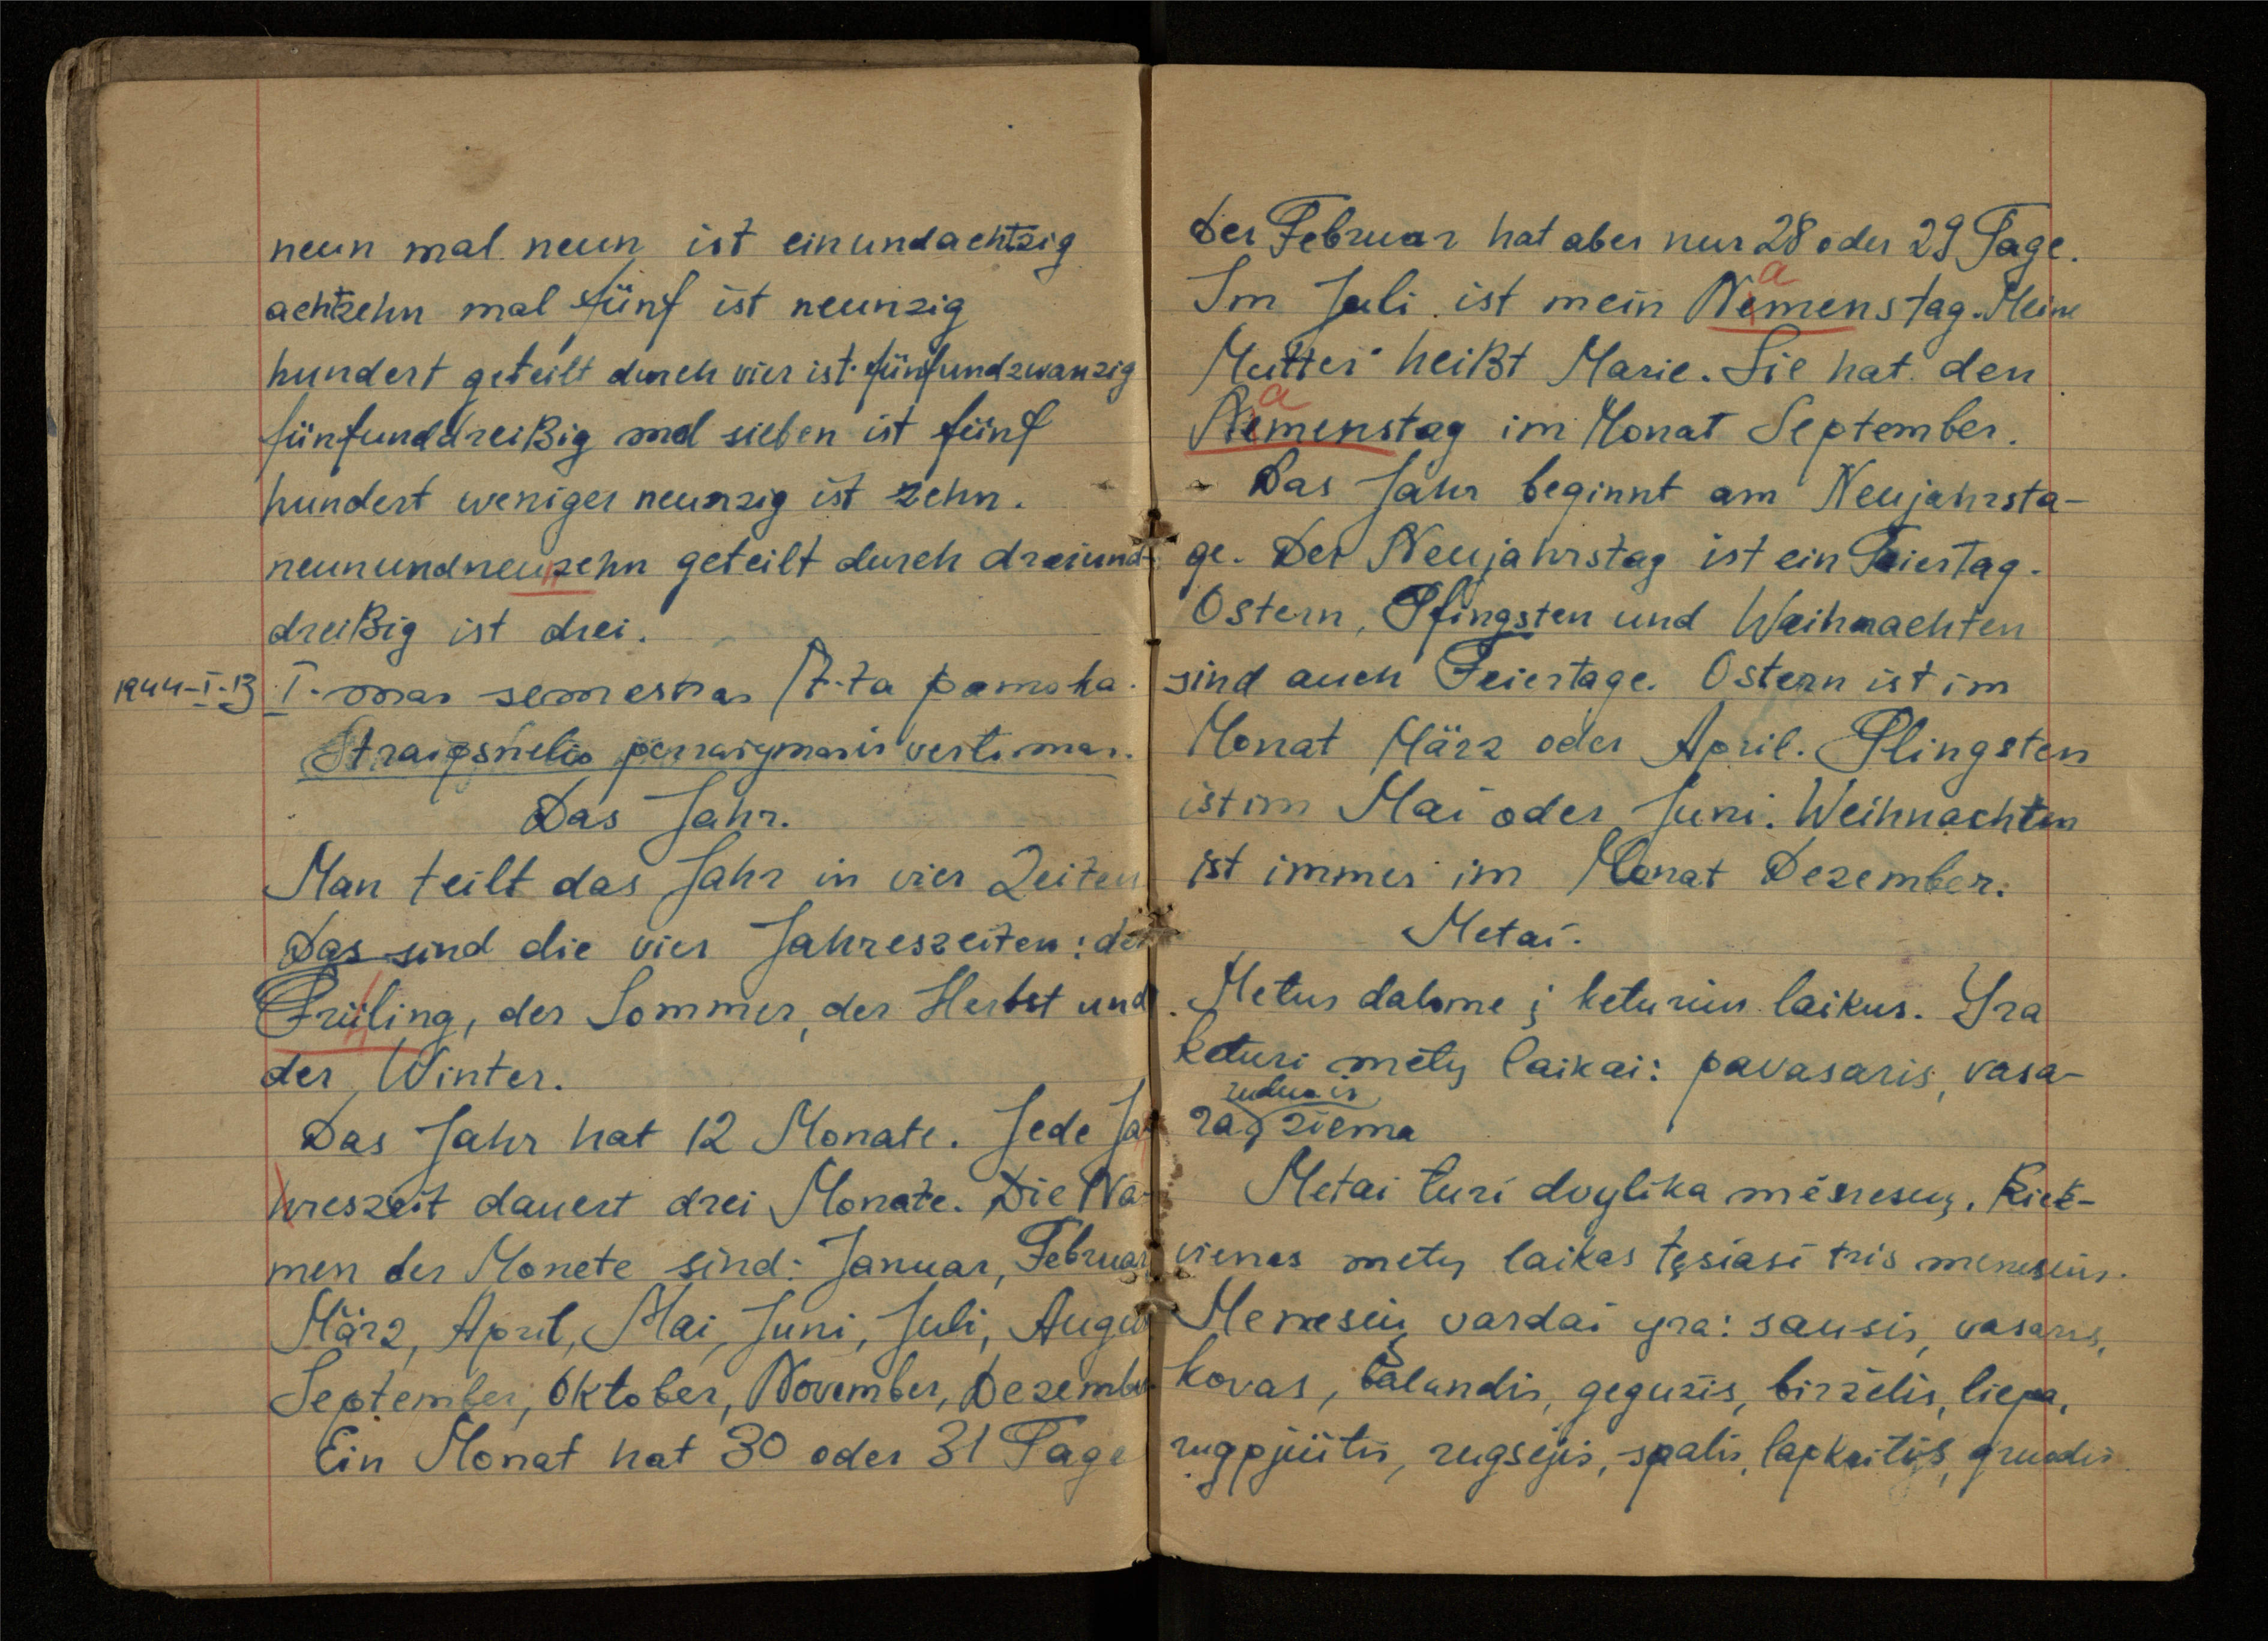 neun mal neun ist einundachtzig
achtzehn mal fünf ist neunzig
hundert geteilt durch vier ist fünfundzwanzig
fünfunddreißig mal sieben ist fünf
hundert weniger neunzig ist zehn.
neunundneunzehn geteilt durch dreiund-
dreißig ist drei.
1944-I-13 I-mas semestras 7-ta pamoka.
Straipsnelio perrašymas ir vertimas.
Das Jahr.
Man teilt das Jahr in vier Zeiten
Das sind die vier Jahreszeiten: der
Früling, der Sommer, der Herbst und
der Winter.
Das Jahr hat 12 Monate. Jede Ja
hreszeit dauert drei Monate. Die Na-
men der Monete sind: Januar, Februar
März, April, Mai, Juni, Juli, Augu
September, Oktober, November, Dezember
Ein Monat hat 30 oder 31 Tage
Der Februar hat aber nur 28 oder 29 Tage.
a
Im Juli ist mein Nemenstag. Meine
Mutter heißt Marie. Sie hat den
a
Nemenstag im Monat September.
Das Jahr beginnt am Neujahrsta-
ge. Der Neujahrstag ist ein Feiertag.
Ostern, Pfingsten und Weihnachten
sind auch Feiertage. Ostern ist im
Monat März oder April. Pfingsten
ist im Mai oder Juni. Weihnachten
ist immer im Monat Dezember.
Metai.
Metus dalome į keturius laikus. Yra
keturi metų laikai: pavasaris, vasa-
ruduo ir
ra, žiema
Metai turi dvylika mėnesių. Kiek-
vienas metų laikas tęsiasi tris menesius.
Menesių vardai yra: sausis, vasaris,
kovas, balandis, gegužis, birželis, liepa,
rugpjūtis, rugsėjis, spalis, lapkritis, gruodis